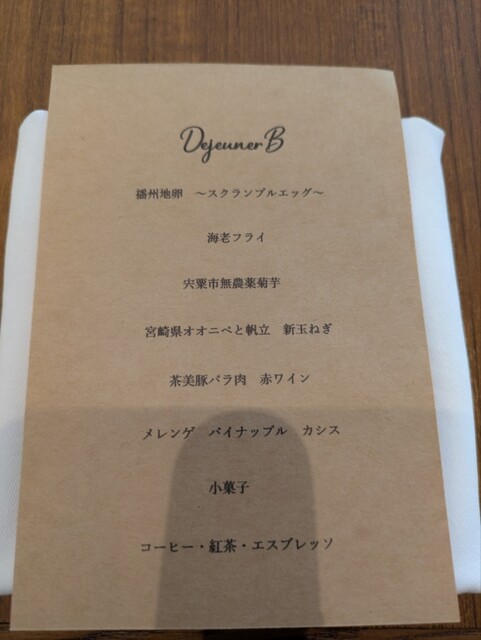 Dejeuner B
播州地卵　～スクランブルエッグ～
海老フライ
宍粟市無農薬菊芋
宮崎県オオニベと帆立　新玉ねぎ
茶美豚バラ肉　赤ワイン
メレンゲ　パイナップル　カシス
小菓子
コーヒー・紅茶・エスプレッソ